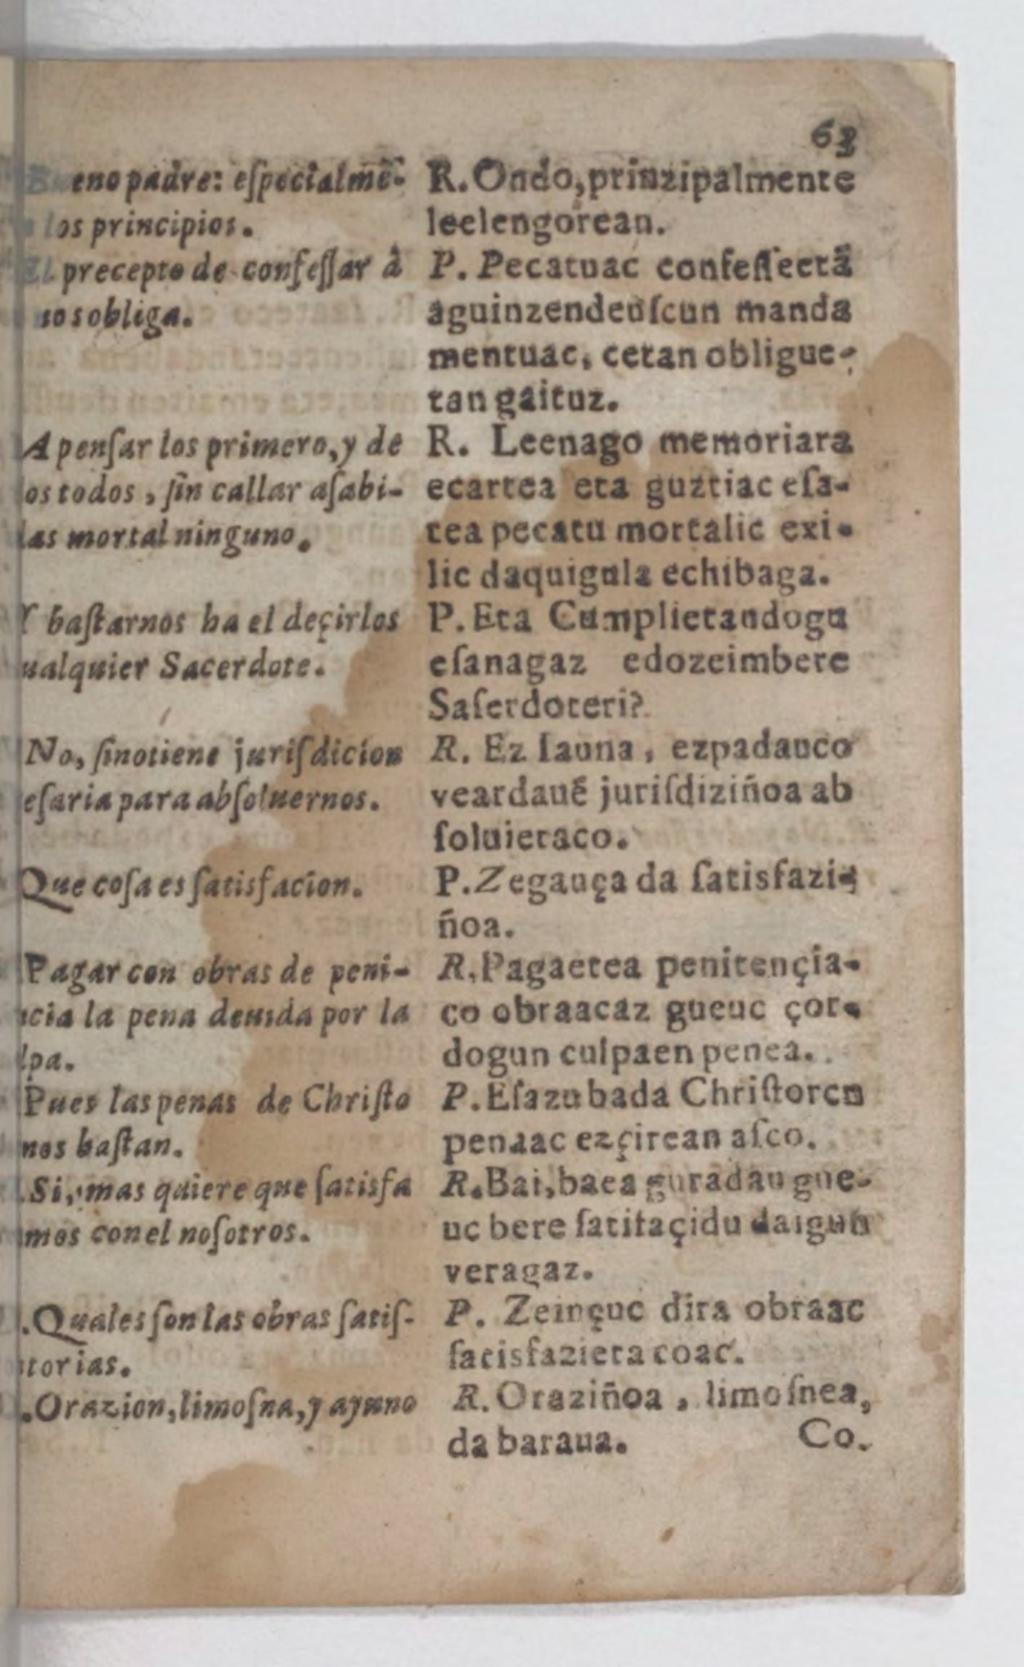 63
eno padre: eſpecialmē-
los principios.
El precepto de confeſſar à
nos obliga.
A penſar los primero, y de
os todos, ſin callar aſabi-
das mortal ninguno.
Y baſtarnos ha el deçirlos
ualquier Sacerdote.
No, ſi no tiene juriſdicion
eſaria para abſoluernos.
Que coſa es ſatisfacion.
Pagar con obras de peni-
ncia la pena deuida por la
lpa.
Pues las penas de Chriſto
nos baſtan.
Si, mas quiere que ſatisfa
mos con el noſotros.
Quales ſon las obras ſatiſ-
torias.
Orazion, limoſna, y ayuno
R. Ondo, prinzipalmente
leelengorean.
P. Pecatuac confeſſeetā
aguinzendeuſcun manda
mentuac, cetan obligue-
tan gaituz.
R. Leenago memoriara
ecartea eta guztiac eſa-
tea pecatu mortalic exi-
lic daquigula echibaga.
P. Eta Cumplietandogu
eſanagaz edozeimbere
Saſerdoteri?
R. Ez Iauna, ezpadauco
veardauē juriſdiziñoa ab
ſoluietaco.
P. Zegauça da ſatisfazi-
ñoa.
R. Pagaetea penitençia-
co obraacaz gueuc çor-
dogun culpaen penea.
P. Eſazu bada Chriſtoren
penaac ezçirean aſco.
R. Bai, baea guradau gue-
uc bere ſatiſaçidu daigun
veragaz.
P. Zeinçuc dira obraac
ſatisfazieta coac.
R. Oraziñoa, limoſnea,
da baraua.
Co.